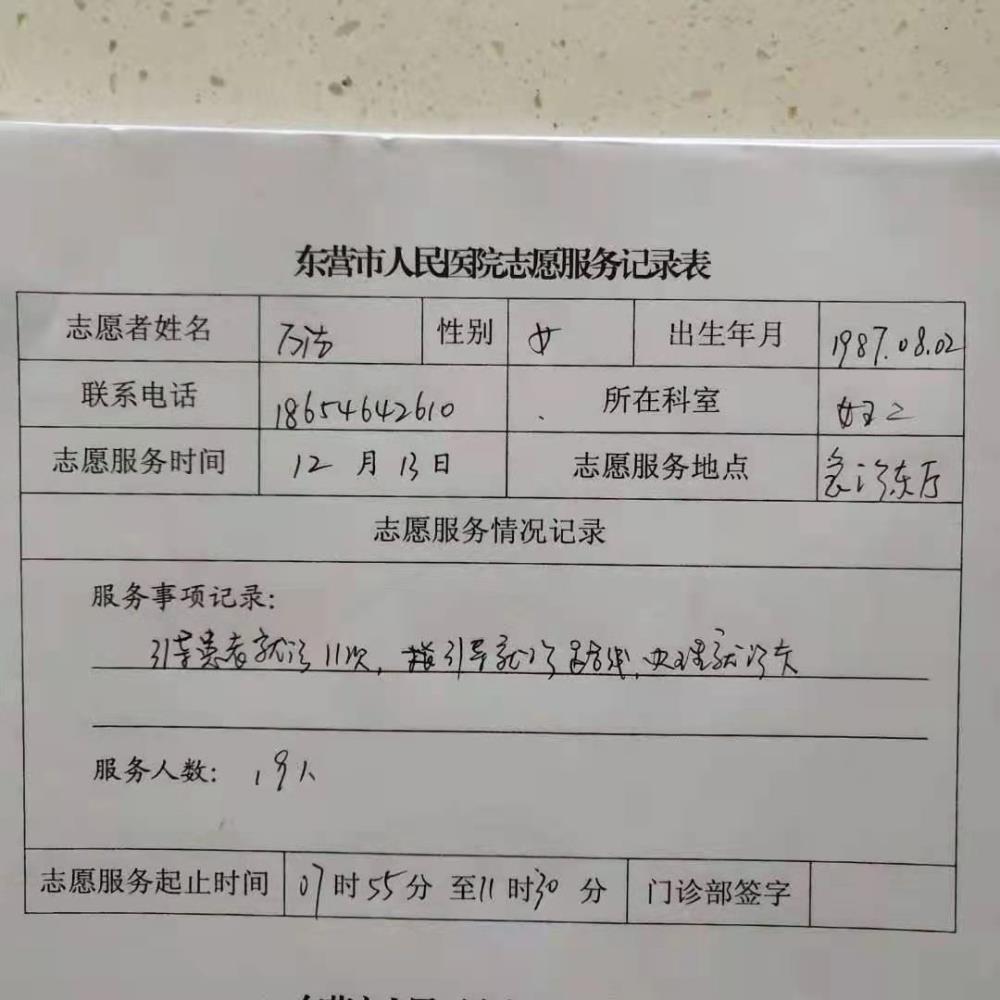 东营市人民医院志愿服务记录表
志愿者姓名 性别 女 出生年月 1987.08.02
联系电话 18654642610 所在科室 妇二
志愿服务时间 12月13日 志愿服务地点 急诊东厅
志愿服务情况记录
服务事项记录:
引导患者就诊11次, 引导就诊路线,办理就诊卡
服务人数: 19人
志愿服务起止时间 07时55分 至11时30分 门诊部签字